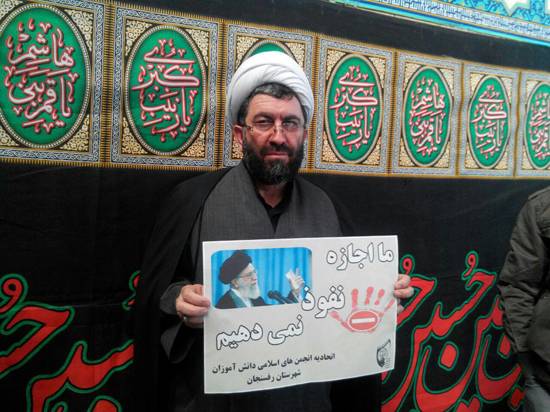 یا قمر بنی هاشم
یا زینب کبری
یا زینب کبری
یا قمر بنی هاشم
یا زینب کبری
ما اجازه
نفوذ
نمی دهیم
اتحادیه انجمن های اسلامی دانش آموزان
شهرستان رفسنجان
حسین
حسین
حسین